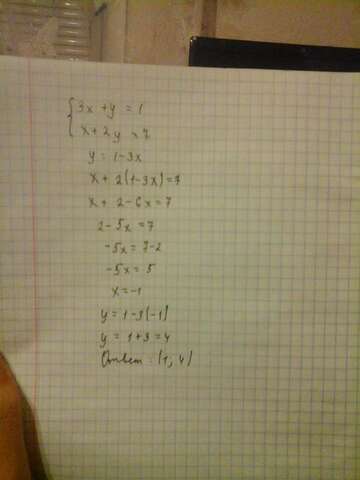 {3x + y = 1
x + 2y = 7
y = 1-3x
x + 2(1-3x)=7
x + 2 - 6x = 7
2 - 5x = 7
-5x = 7-2
-5x = 5
x = -1
y = 1-3(-1)
y = 1+3 = 4
Ответ: (1; 4)